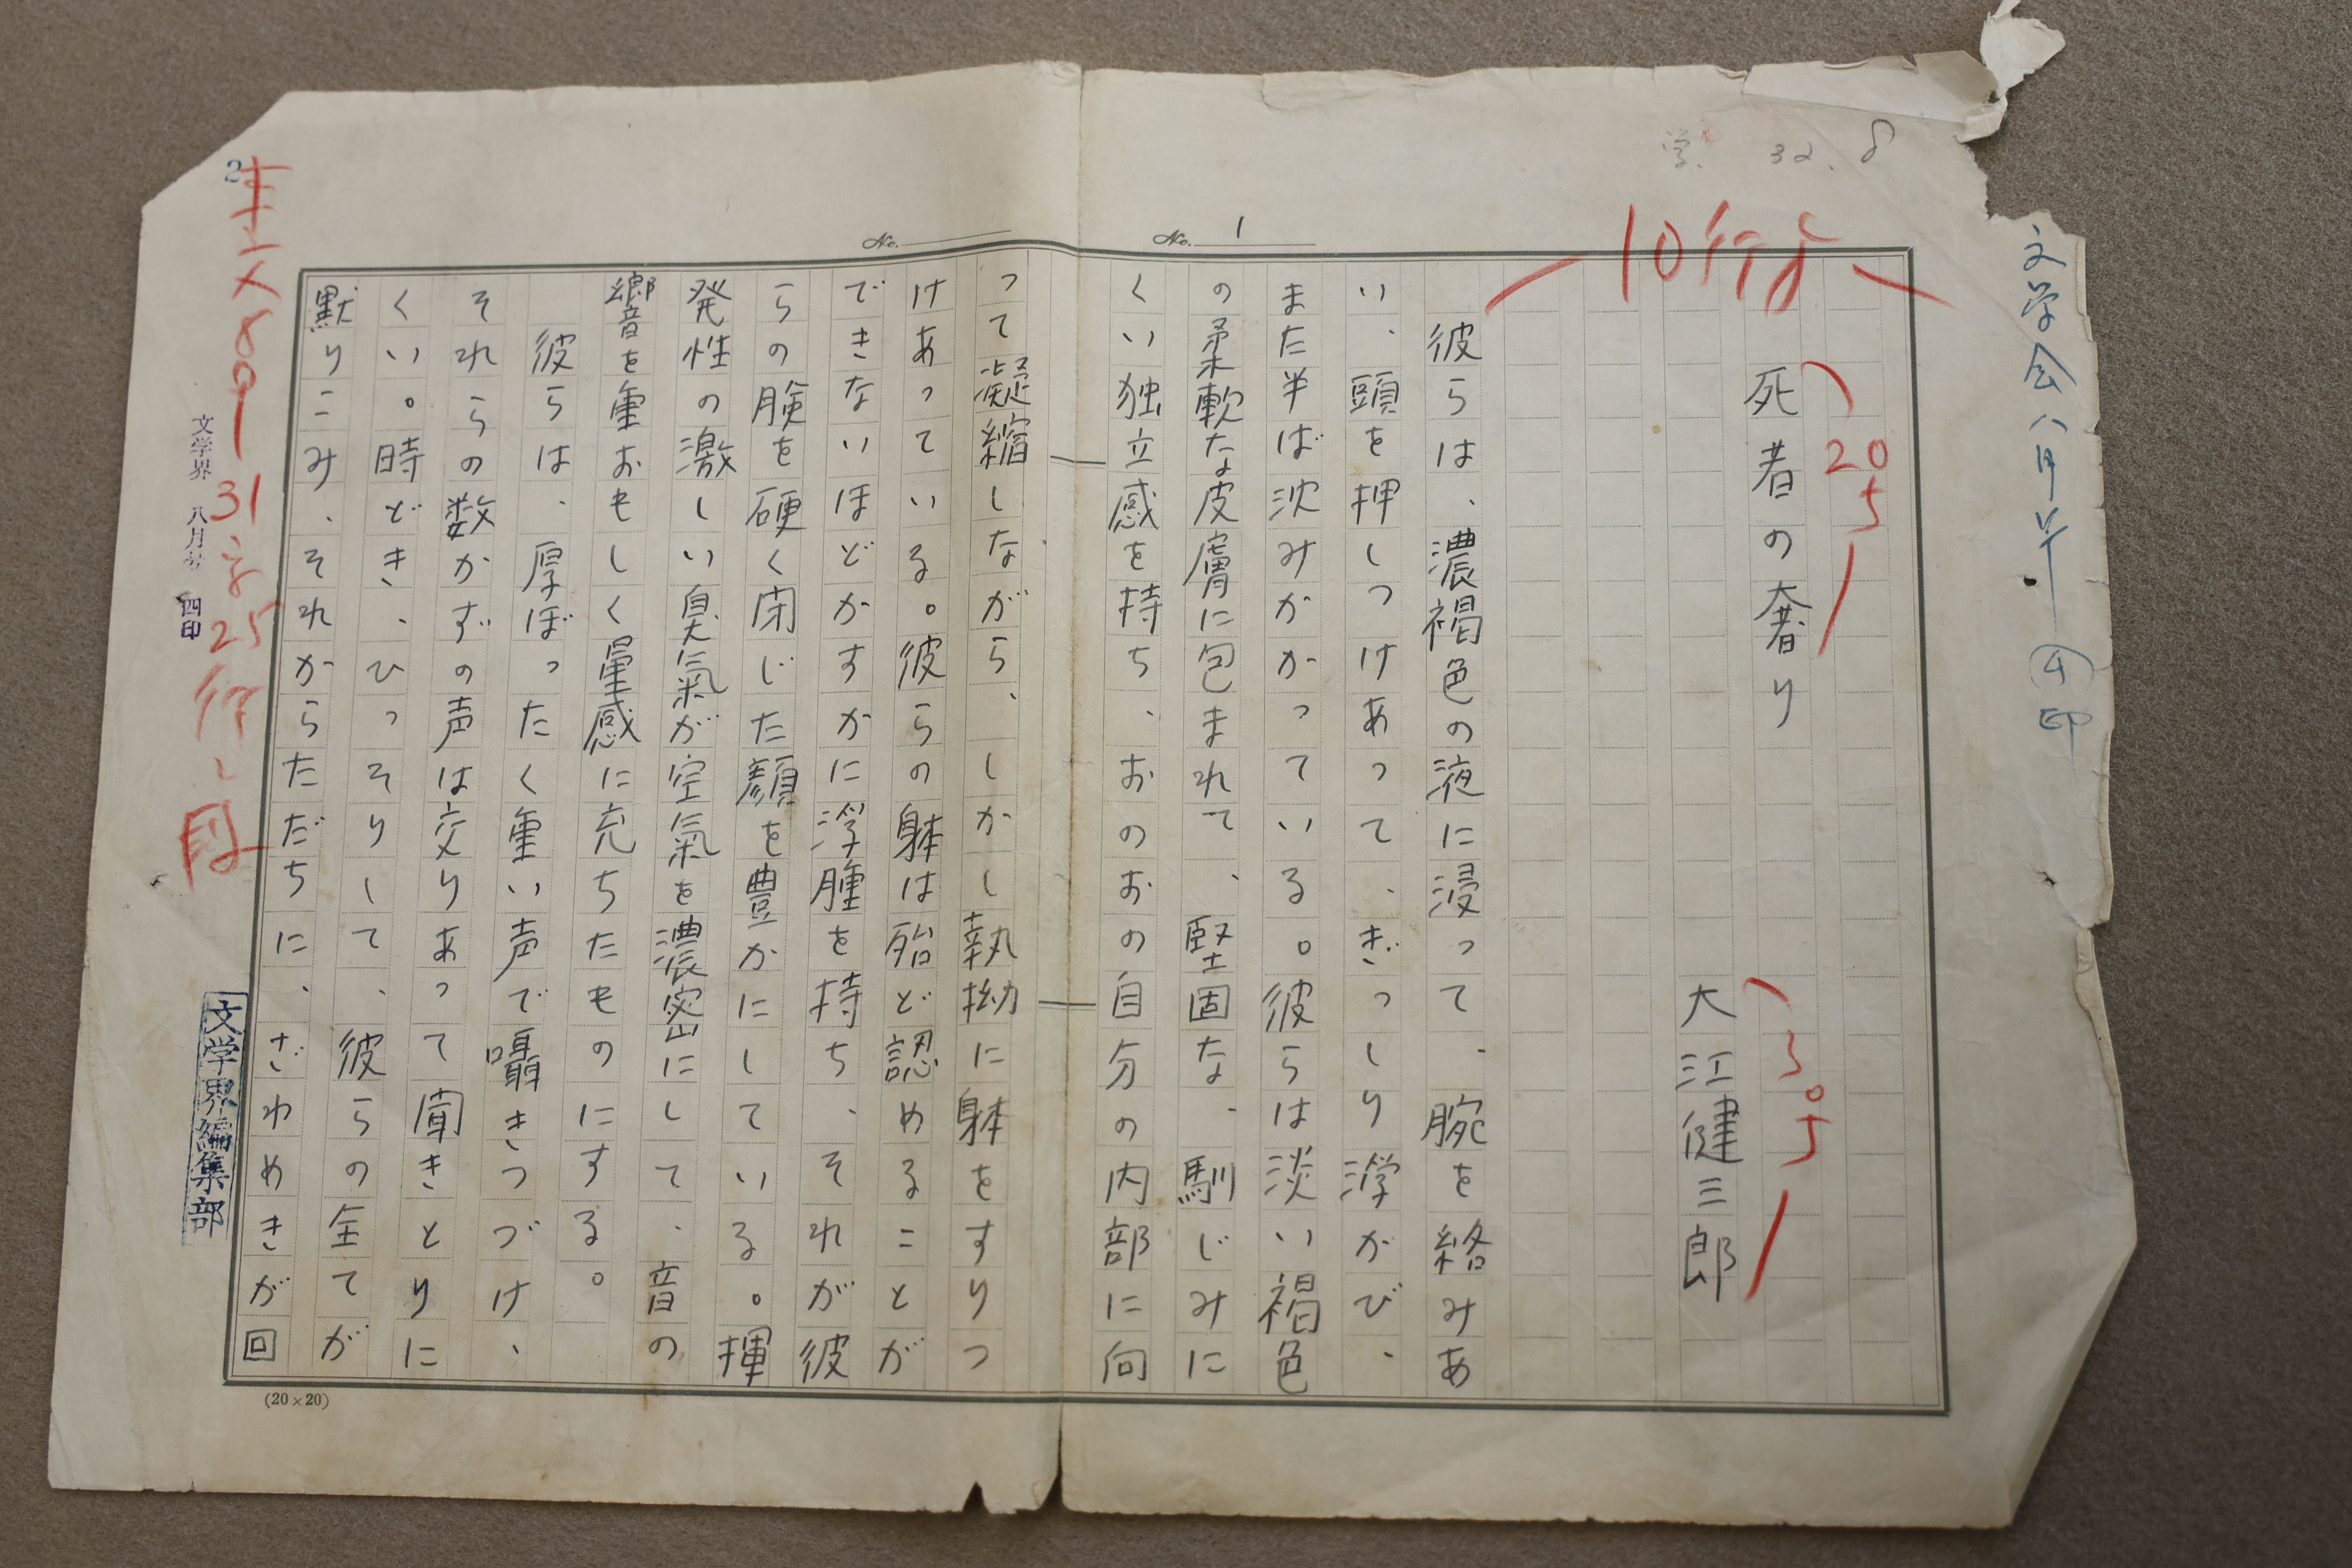 学 32. 8
文学会八月号 ④印
10行
No. 1
No.
死者の奢り
20
5
大江健三郎
彼らは、濃褐色の液に浸って、腕を絡みあ
い、頭を押しつけあって、ぎっしり浮かび、
また半ば沈みかかっている。彼らは淡い褐色
の柔軟な皮膚に包まれて、堅固な、馴じみに
くい独立感を持ち、おのおの自分の内部に向
って凝縮しながら、しかし執拗に躰をすりつ
けあっている。彼らの躰は殆ど認めることが
できないほどかすかに浮腫を持ち、それが彼
らの瞼を硬く閉じた顔を豊かにしている。揮
発性の激しい臭氣が空氣を濃密にして、音の
響を重おもしく量感に充ちたものにする。
彼らは、厚ぼったく重い声で囁きつづけ、
それらの数かずの声は交りあって聞きとりに
くい。時どき、ひっそりして、彼らの全てが
黙りこみ、それからただちに、ざわめきが回
(20×20)
2
31字25行
文学界 八月号 四印
文学界編集部